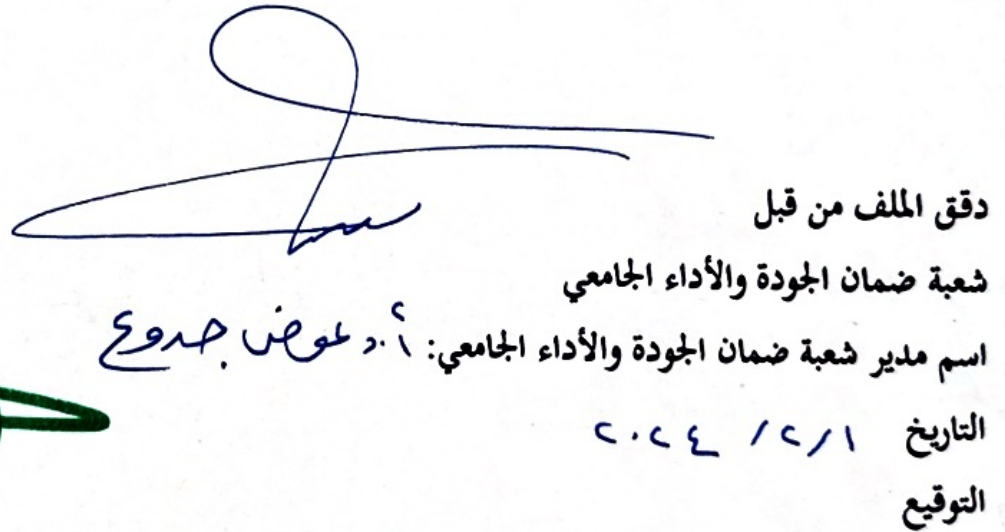 دقق الملف من قبل
شعبة ضمان الجودة والأداء الجامعي
اسم مدير شعبة ضمان الجودة والأداء الجامعي: أ.د عوض جدوع
التاريخ ١/٢/ ٢٠٢٤
التوقيع